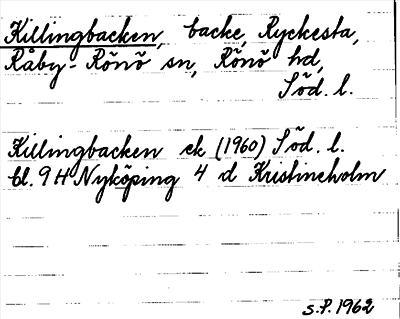 Killingbacken, backe, Ryckesta,
Råby-Rönö sn, Rönö hd,
Söd. l.
Killingbacken ek (1960) Söd. l.
bl. 9H Nyköping 4 d Kristineholm
S.P. 1962